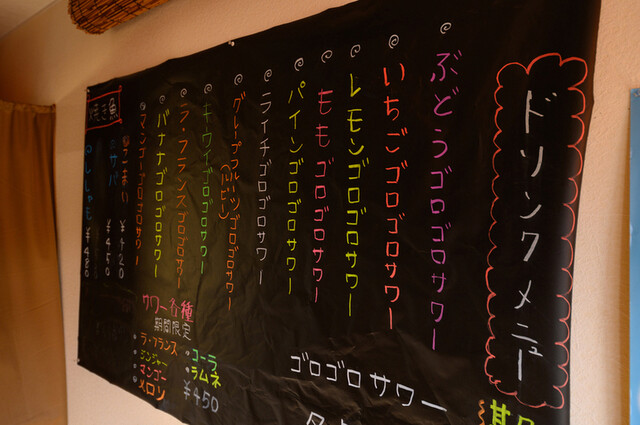 ドリンクメニュー
ぶどうゴロゴロサワー
いちごゴロゴロサワー
レモンゴロゴロサワー
ももゴロゴロサワー
パインゴロゴロサワー
ライチゴロゴロサワー
グレープフルーツゴロゴロサワー
キウイゴロゴロサワー
ラ・フランスゴロゴロサワー
バナナゴロゴロサワー
マンゴーゴロゴロサワー
ゴロゴロサワー
サワー各種
期間限定
コーラ
ラムネ
¥450
ラ・フランス
ジンジャー
マンゴー
メロン
¥420
サバ ¥450
ししゃも ¥480